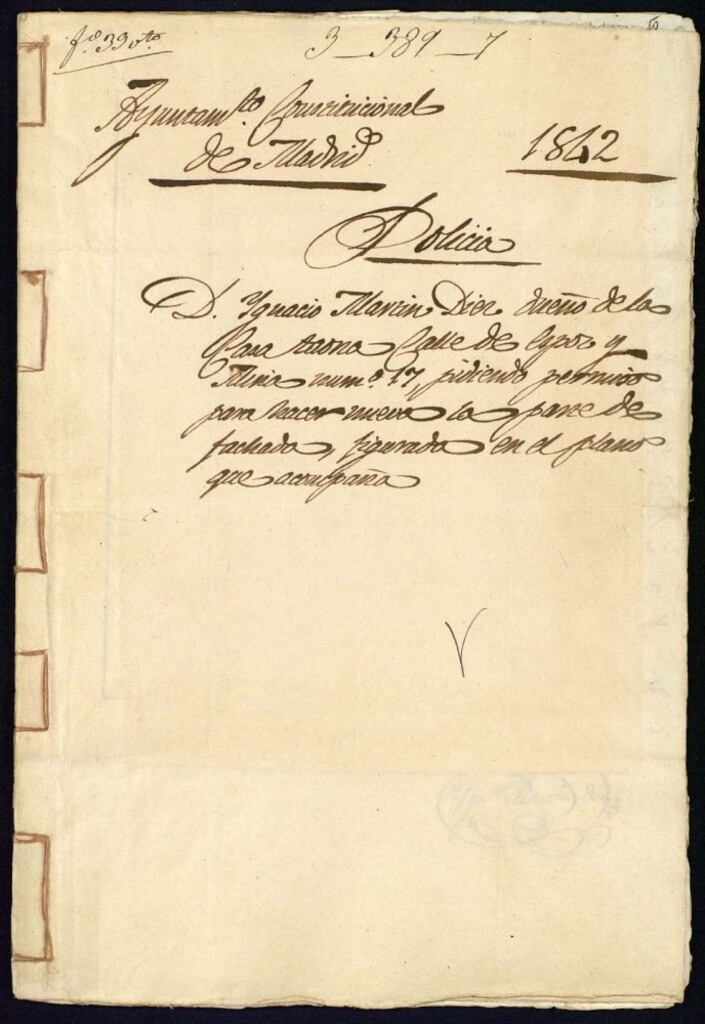 fº 33 vto
3_389_7
Ayuntamto Constitucional
de Madrid
1842
Policia
D. Ygnacio Martin Diez dueño de la
Casa taona Calle de Espoz y
Mina numº 17, pidiendo permiso
para hacer nueva la parte de
fachada, figurada en el plano
que acompaña